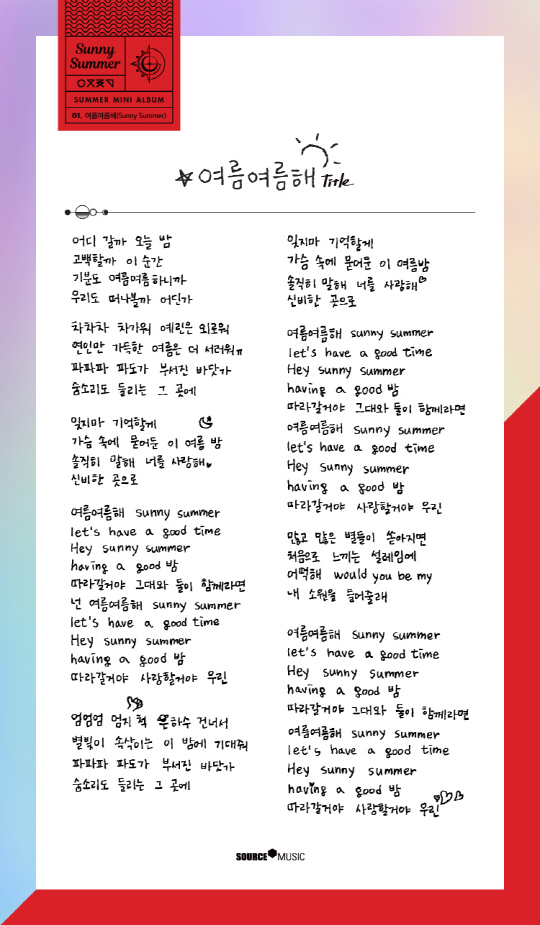 Sunny
Summer
SUMMER MINI ALBUM
01. 여름여름해(Sunny Summer)
여름여름해 Title
어디 갈까 오늘 밤
고백할까 이 순간
기분도 여름여름하니까
우리도 떠나볼까 어딘가
차차차 차가워 예린은 외로워
연인만 가득한 여름은 더 서러워ㅠ
파파파 파도가 부서진 바닷가
숨소리도 들리는 그 곳에
잊지마 기억할게
가슴 속에 묻어둔 이 여름 밤
솔직히 말해 너를 사랑해
신비한 곳으로
여름여름해 sunny summer
let's have a good time
Hey sunny summer
having a good 밤
따라갈거야 그대와 둘이 함께라면
넌 여름여름해 sunny summer
let's have a good time
Hey sunny summer
having a good 밤
따라갈거야 사랑할거야 우린
엄엄엄 엄지 척 은하수 건너서
별빛이 속삭이는 이 밤에 기대줘
파파파 파도가 부서진 바닷가
숨소리도 들리는 그 곳에
잊지마 기억할게
가슴 속에 묻어둔 이 여름밤
솔직히 말해 너를 사랑해
신비한 곳으로
여름여름해 sunny summer
let's have a good time
Hey sunny summer
having a good 밤
따라갈거야 그대와 둘이 함께라면
여름여름해 sunny summer
let's have a good time
Hey sunny summer
having a good 밤
따라갈거야 사랑할거야 우린
많고 많은 별들이 쏟아지면
처음으로 느끼는 설레임에
어떡해 would you be my
내 소원을 들어줄래
여름여름해 sunny summer
let's have a good time
Hey sunny summer
having a good 밤
따라갈거야 그대와 둘이 함께라면
여름여름해 sunny summer
let's have a good time
Hey sunny summer
having a good 밤
따라갈거야 사랑할거야 우린
SOURCE MUSIC